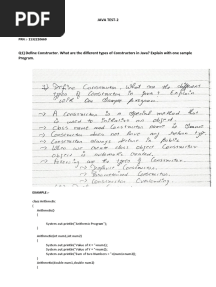 PDF
JAVA TEST-2
PRN :
Q1) Define Constructor. What are the different types of Constructors in Java? Explain with one sample
Program.
1) Define Constructor. What are the different
types of Constructor in Java? Explain
with one sample program.
→ A constructor is a special method that
is used to initialize an object.
→ Class name and Constructor name is same
→ Constructor does not have any return type.
→ Constructor always declare in public
→ When we create class object Constructor
object is automatic created.
→ Following are the types of Constructor
→ Default Constructor
→ Parameterized Constructor
→ Constructor Overloading
EXAMPLE:-
class Arithmetic
{
Arithmetic()
{
System.out.println("Arithmetic Program");
}
Arithmetic(int num1,int num2)
{
System.out.println("Value of A = "+num1);
System.out.println("Value of B = "+num2);
}
Arithmetic(double num1,double num2)
{